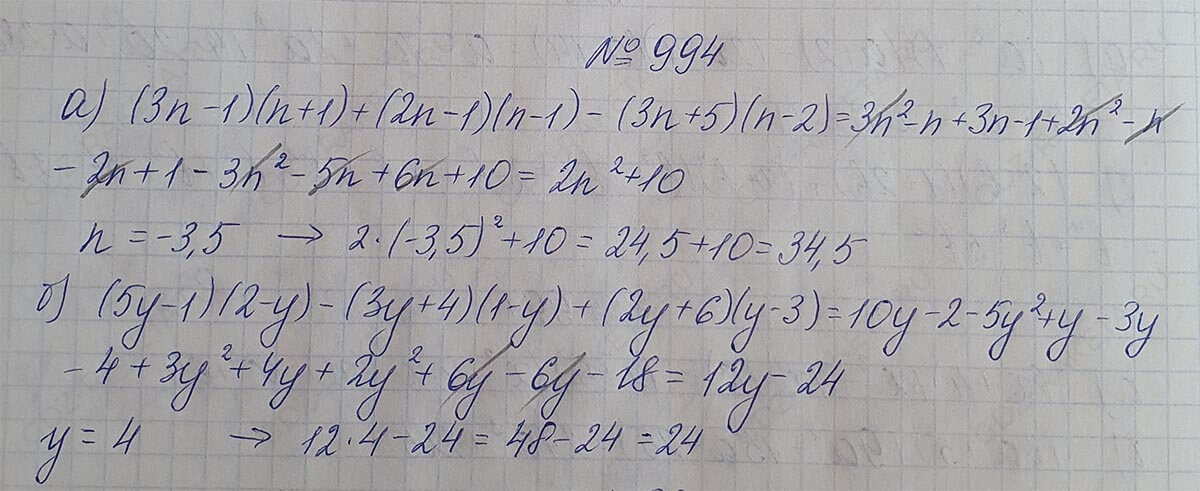 № 994
а) (3n-1)(n+1)+(2n-1)(n-1)-(3n+5)(n-2)=3n²-n+3n-1+2n²-n
-2n+1-3n²-5n+6n+10=2n²+10
n=-3,5 → 2·(-3,5)²+10=24,5+10=34,5
б) (5y-1)(2-y)-(3y+4)(1-y)+(2y+6)(y-3)=10y-2-5y²+y-3y
-4+3y²+4y+2y²+6y-6y-18=12y-24
y=4 → 12·4-24=48-24=24